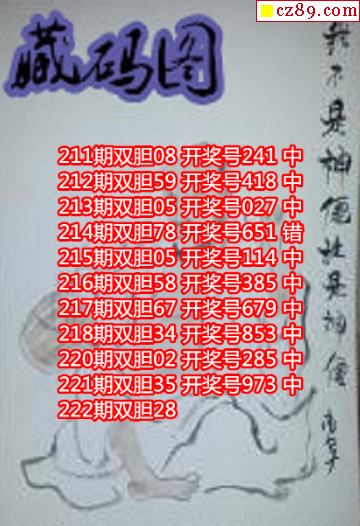 cz89.com
藏码图
我不是神
但比是神
211期双胆08 开奖号241 中
212期双胆59 开奖号418 中
213期双胆05 开奖号027 中
214期双胆78 开奖号651 错
215期双胆05 开奖号114 中
216期双胆58 开奖号385 中
217期双胆67 开奖号679 中
218期双胆34 开奖号853 中
220期双胆02 开奖号285 中
221期双胆35 开奖号973 中
222期双胆28